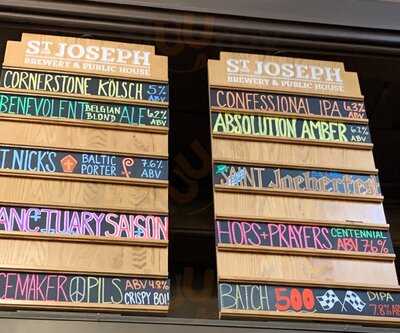 ST JOSEPH
BREWERY & PUBLIC HOUSE
CORNERSTONE KÖLSCH 5% ABV
BENEVOLENT BELGIAN BLOND ALE 6.2% ABV
T. NICKS BALTIC PORTER 7.6% ABV
ANCTUARY SAISON
CEMAKER PILS ABV 4.8% CRISPY BOI!
ST JOSEPH
BREWERY & PUBLIC HOUSE
CONFESSIONAL IPA 6.3% ABV
ABSOLUTION AMBER 6.2% ABV
SAINT Joeberfest
HOPS+PRAYERS CENTENNIAL ABV 7.6%
BATCH 500 DIPA 7.8% AB